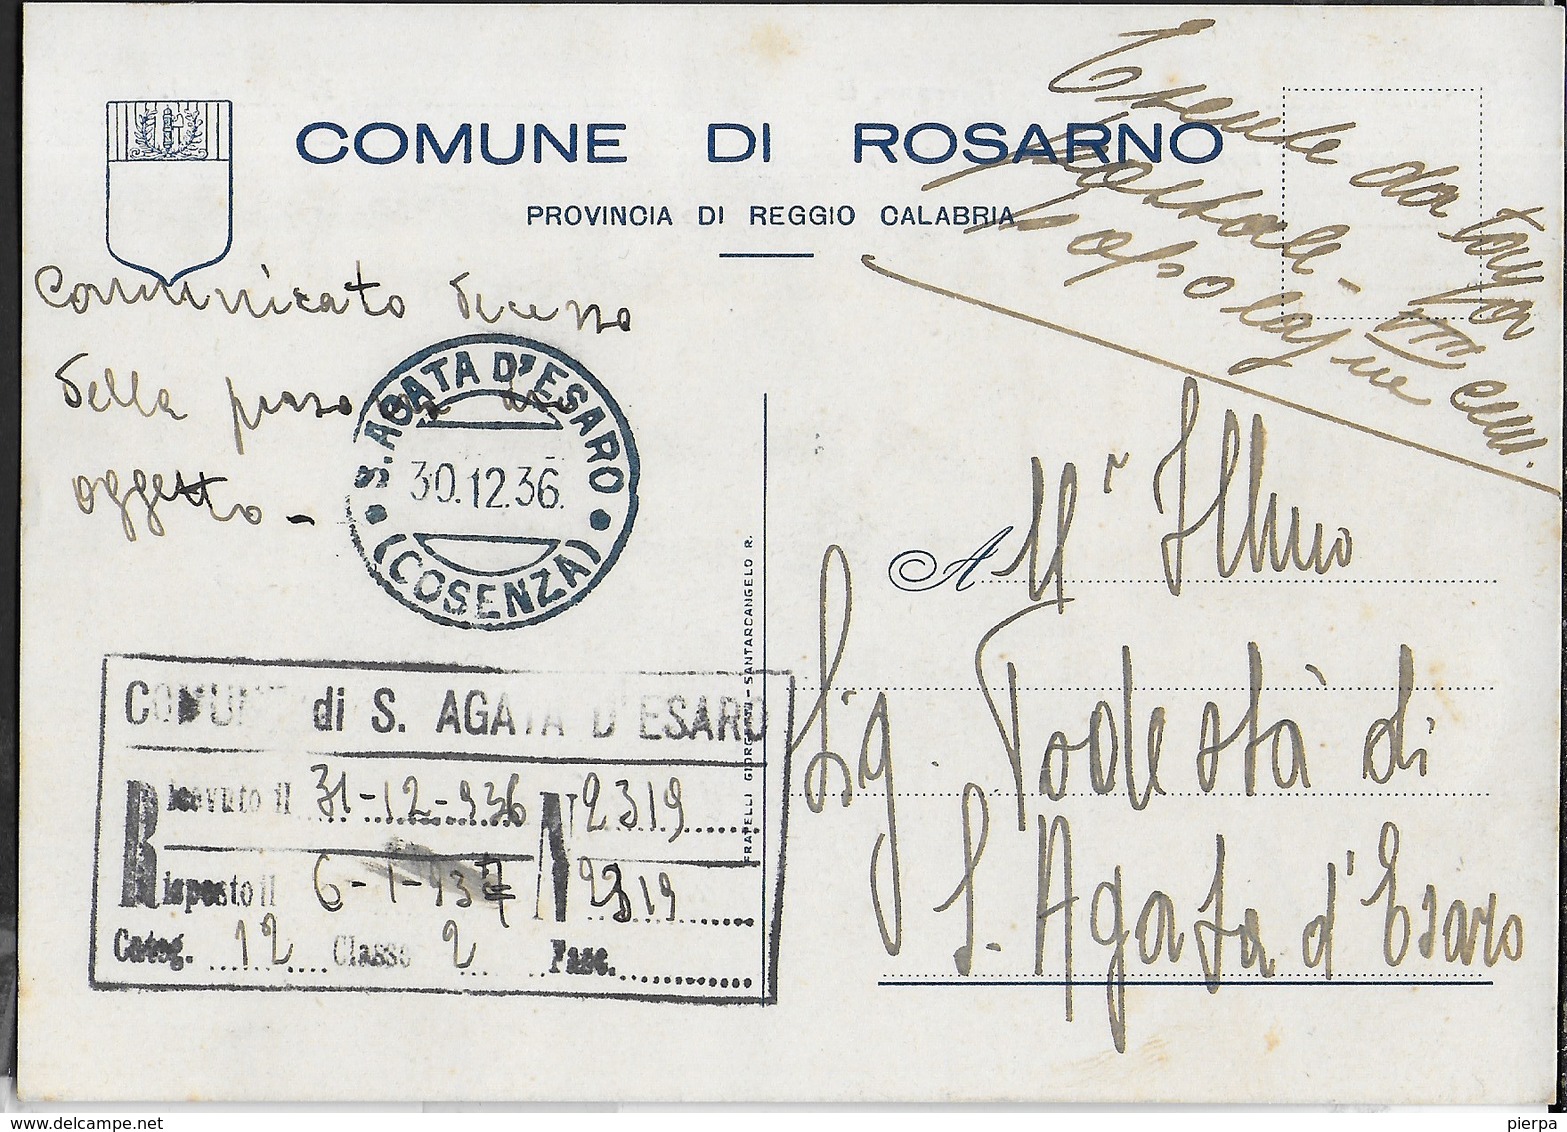 COMUNE DI ROSARNO
PROVINCIA DI REGGIO CALABRIA
Esente da tassa
postale -
VIII cens.
Comunicato
della
oggetto -
S. AGATA D'ESARO
30.12.36.
(COSENZA)
A Ill.r Illmo
Sig. Podestà di
S. Agata d'Esaro
FRATELLI GIORGETTI - SANTARCANGELO R.
COMUNE di S. AGATA D'ESARO
Ricevuto il 31-12-936 N 2319
Risposto il 6-1-937 N 2319
Categ. 12 Classe 2 Fasc.
pierpa